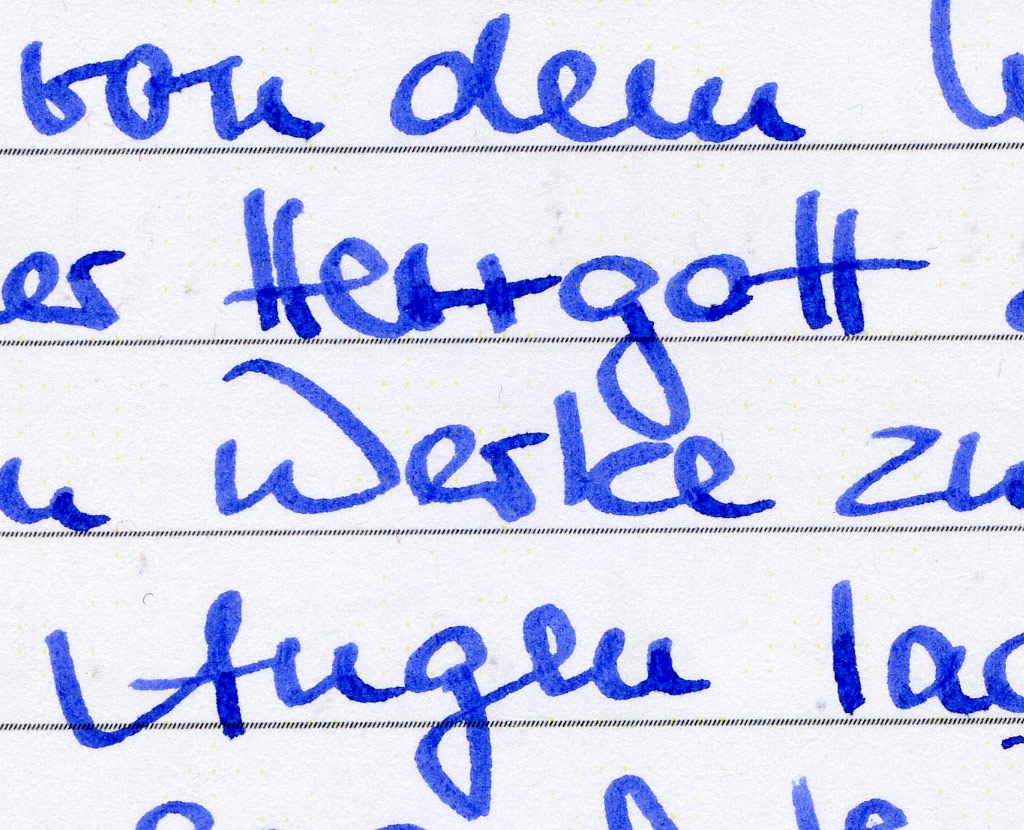 von dem
er Herrgott
Werke zu
Augen lag